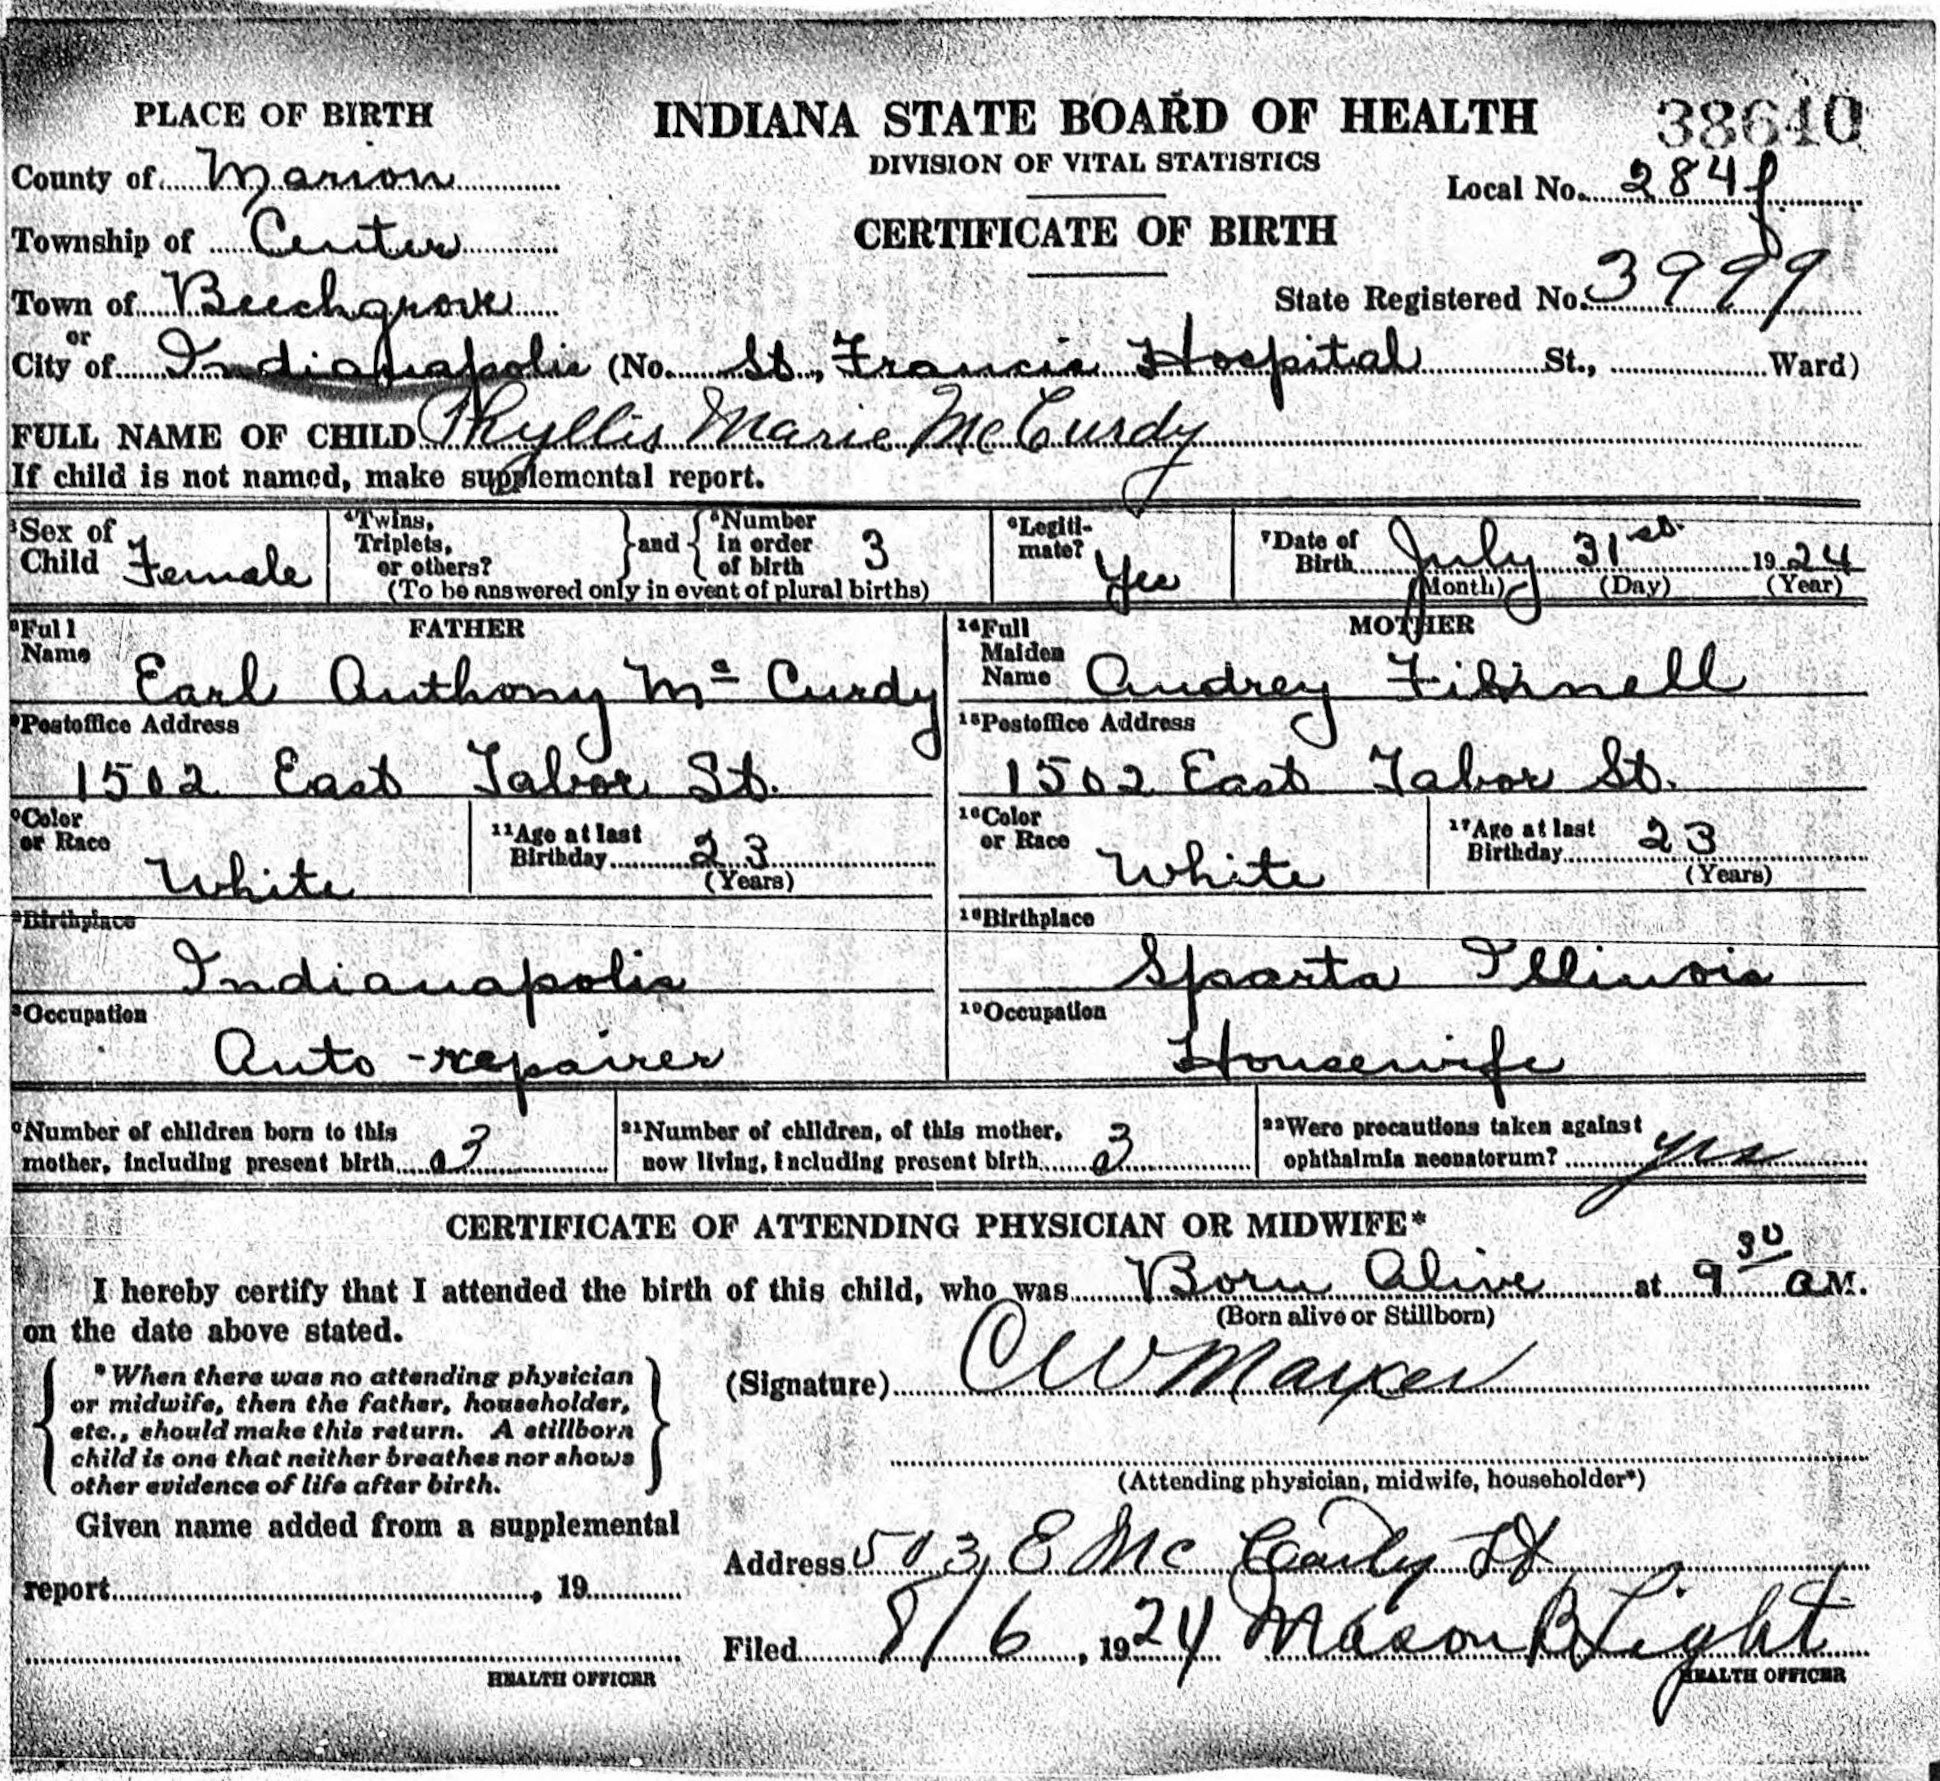 PLACE OF BIRTH
INDIANA STATE BOARD OF HEALTH
38640
DIVISION OF VITAL STATISTICS
County of Marion
Local No. 284
Township of Center
CERTIFICATE OF BIRTH
Town of Beechgrove
State Registered No. 3999
or
City of Indianapolis (No. St, Francis Hospital St., Ward)
FULL NAME OF CHILD Phyllis Marie McCurdy
If child is not named, make supplemental report.
Sex of Child Female
Twins, Triplets, or others? and Number in order of birth 3
(To be answered only in event of plural births)
Legitimate? Yes
Date of Birth July 31st 1924
(Month) (Day) (Year)
FATHER
Full Name Earl Anthony Mc Curdy
MOTHER
14 Full Maiden Name Audrey
Postoffice Address
1502 East Tabor St.
15 Postoffice Address
1502 East Tabor St.
Color or Race White
11 Age at last Birthday 23
(Years)
16 Color or Race White
17 Age at last Birthday 23
(Years)
Birthplace
Indianapolis
18 Birthplace
Sparta Illinois
Occupation
Auto-repairer
19 Occupation
Housewife
Number of children born to this mother, including present birth 3
21 Number of children, of this mother, now living, including present birth 3
22 Were precautions taken against ophthalmia neonatorum? yes
CERTIFICATE OF ATTENDING PHYSICIAN OR MIDWIFE*
I hereby certify that I attended the birth of this child, who was Born Alive at 9 30 a M.
(Born alive or Stillborn)
on the date above stated.
*When there was no attending physician
or midwife, then the father, householder,
etc., should make this return. A stillborn
child is one that neither breathes nor shows
other evidence of life after birth.
(Signature) C W
(Attending physician, midwife, householder*)
Given name added from a supplemental
report , 19
HEALTH OFFICER
Address 513 E Mc Carty St
Filed 8/6, 1924 Mason B Light
HEALTH OFFICER